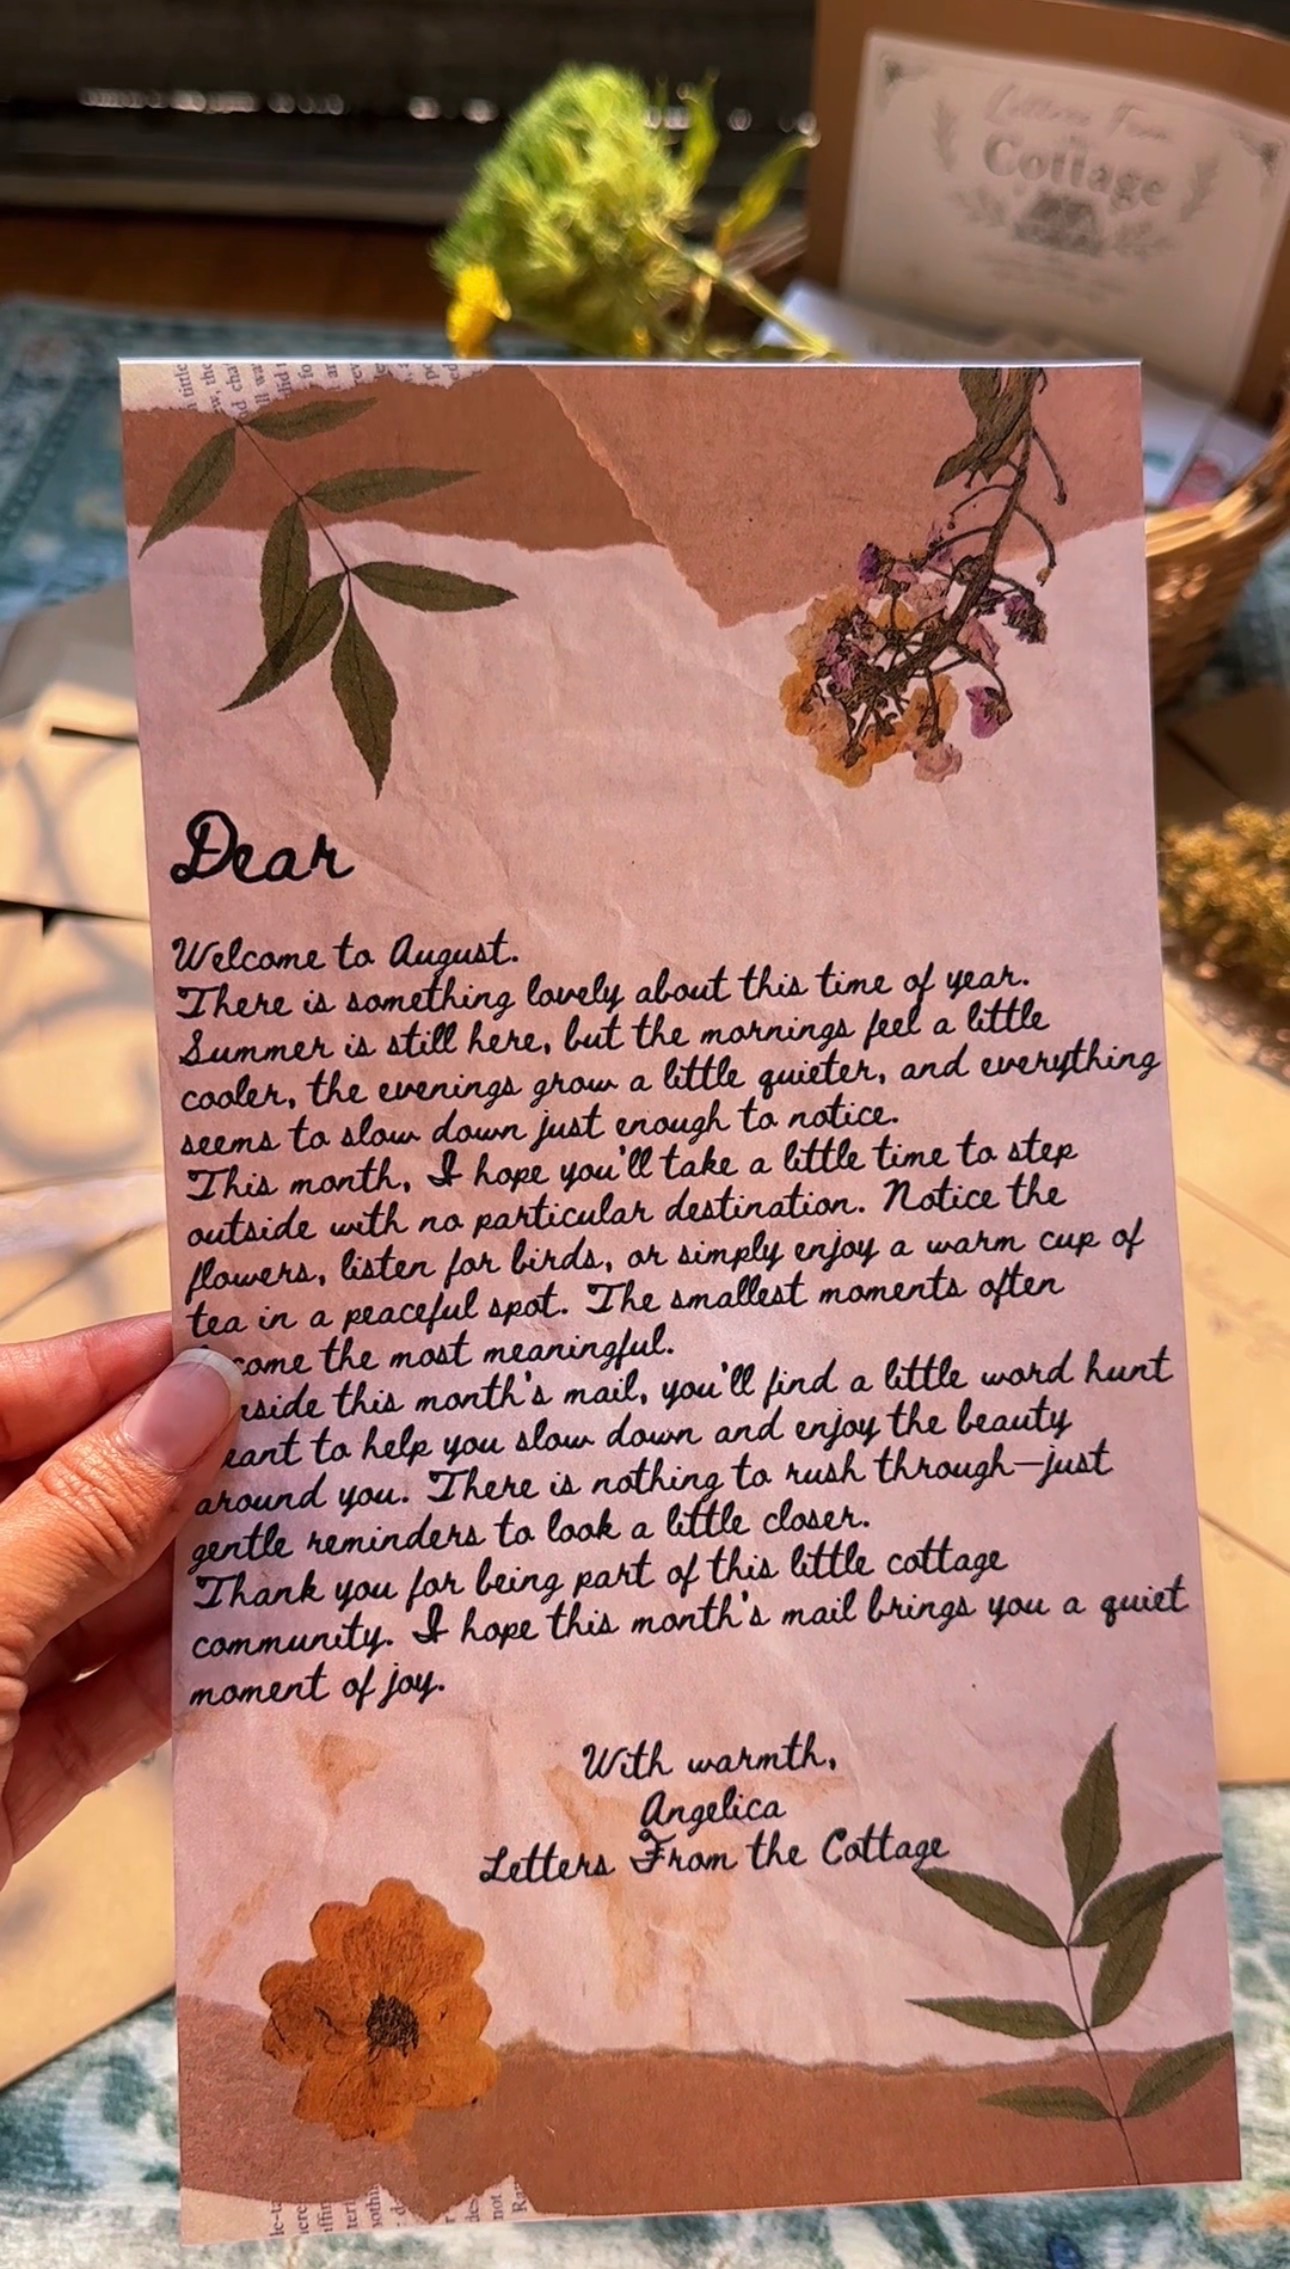 Letters From
Cottage
Dear
Welcome to August.
There is something lovely about this time of year.
Summer is still here, but the mornings feel a little
cooler, the evenings grow a little quieter, and everything
seems to slow down just enough to notice.
This month, I hope you'll take a little time to step
outside with no particular destination. Notice the
flowers, listen for birds, or simply enjoy a warm cup of
tea in a peaceful spot. The smallest moments often
come the most meaningful.
side this month's mail, you'll find a little word hunt
eant to help you slow down and enjoy the beauty
around you. There is nothing to rush through—just
gentle reminders to look a little closer.
Thank you for being part of this little cottage
community. I hope this month's mail brings you a quiet
moment of joy.
With warmth,
Angelica
Letters From the Cottage